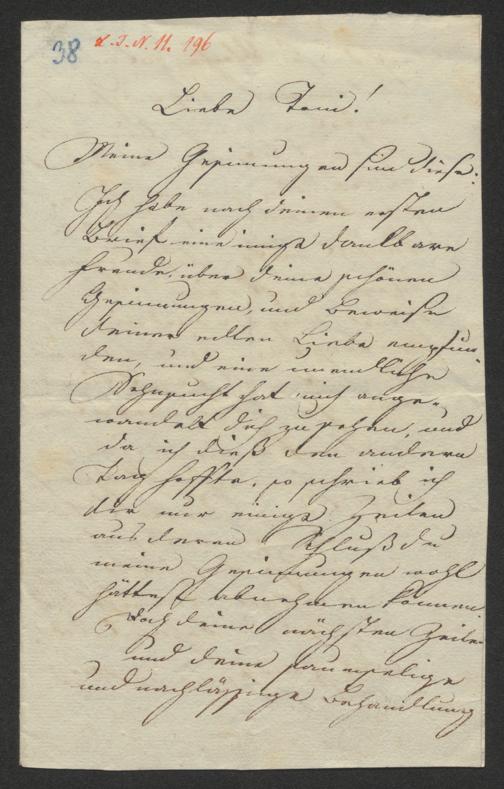 38 L.I.N. 11. 196
Liebe Toni!
Meine Gesinnungen sind diese:
Ich habe nach deinen ersten
Brief eine innige dankbare
Freude, über deine schönen
Gesinnungen, und Beweise
deiner edlen Liebe empfun
den, und eine unendliche
Sehnsucht hat mich ange-
wandelt dich zu sehen, und
da ich dieß den andern
Tag hoffte, so schrieb ich
dir nur einige Zeilen
aus deren Schluß du
meine Gesinnungen wohl
hättest abnehmen können
Doch deine nächsten Zeilen
und deine saumselige
und nachlässige Behandlung